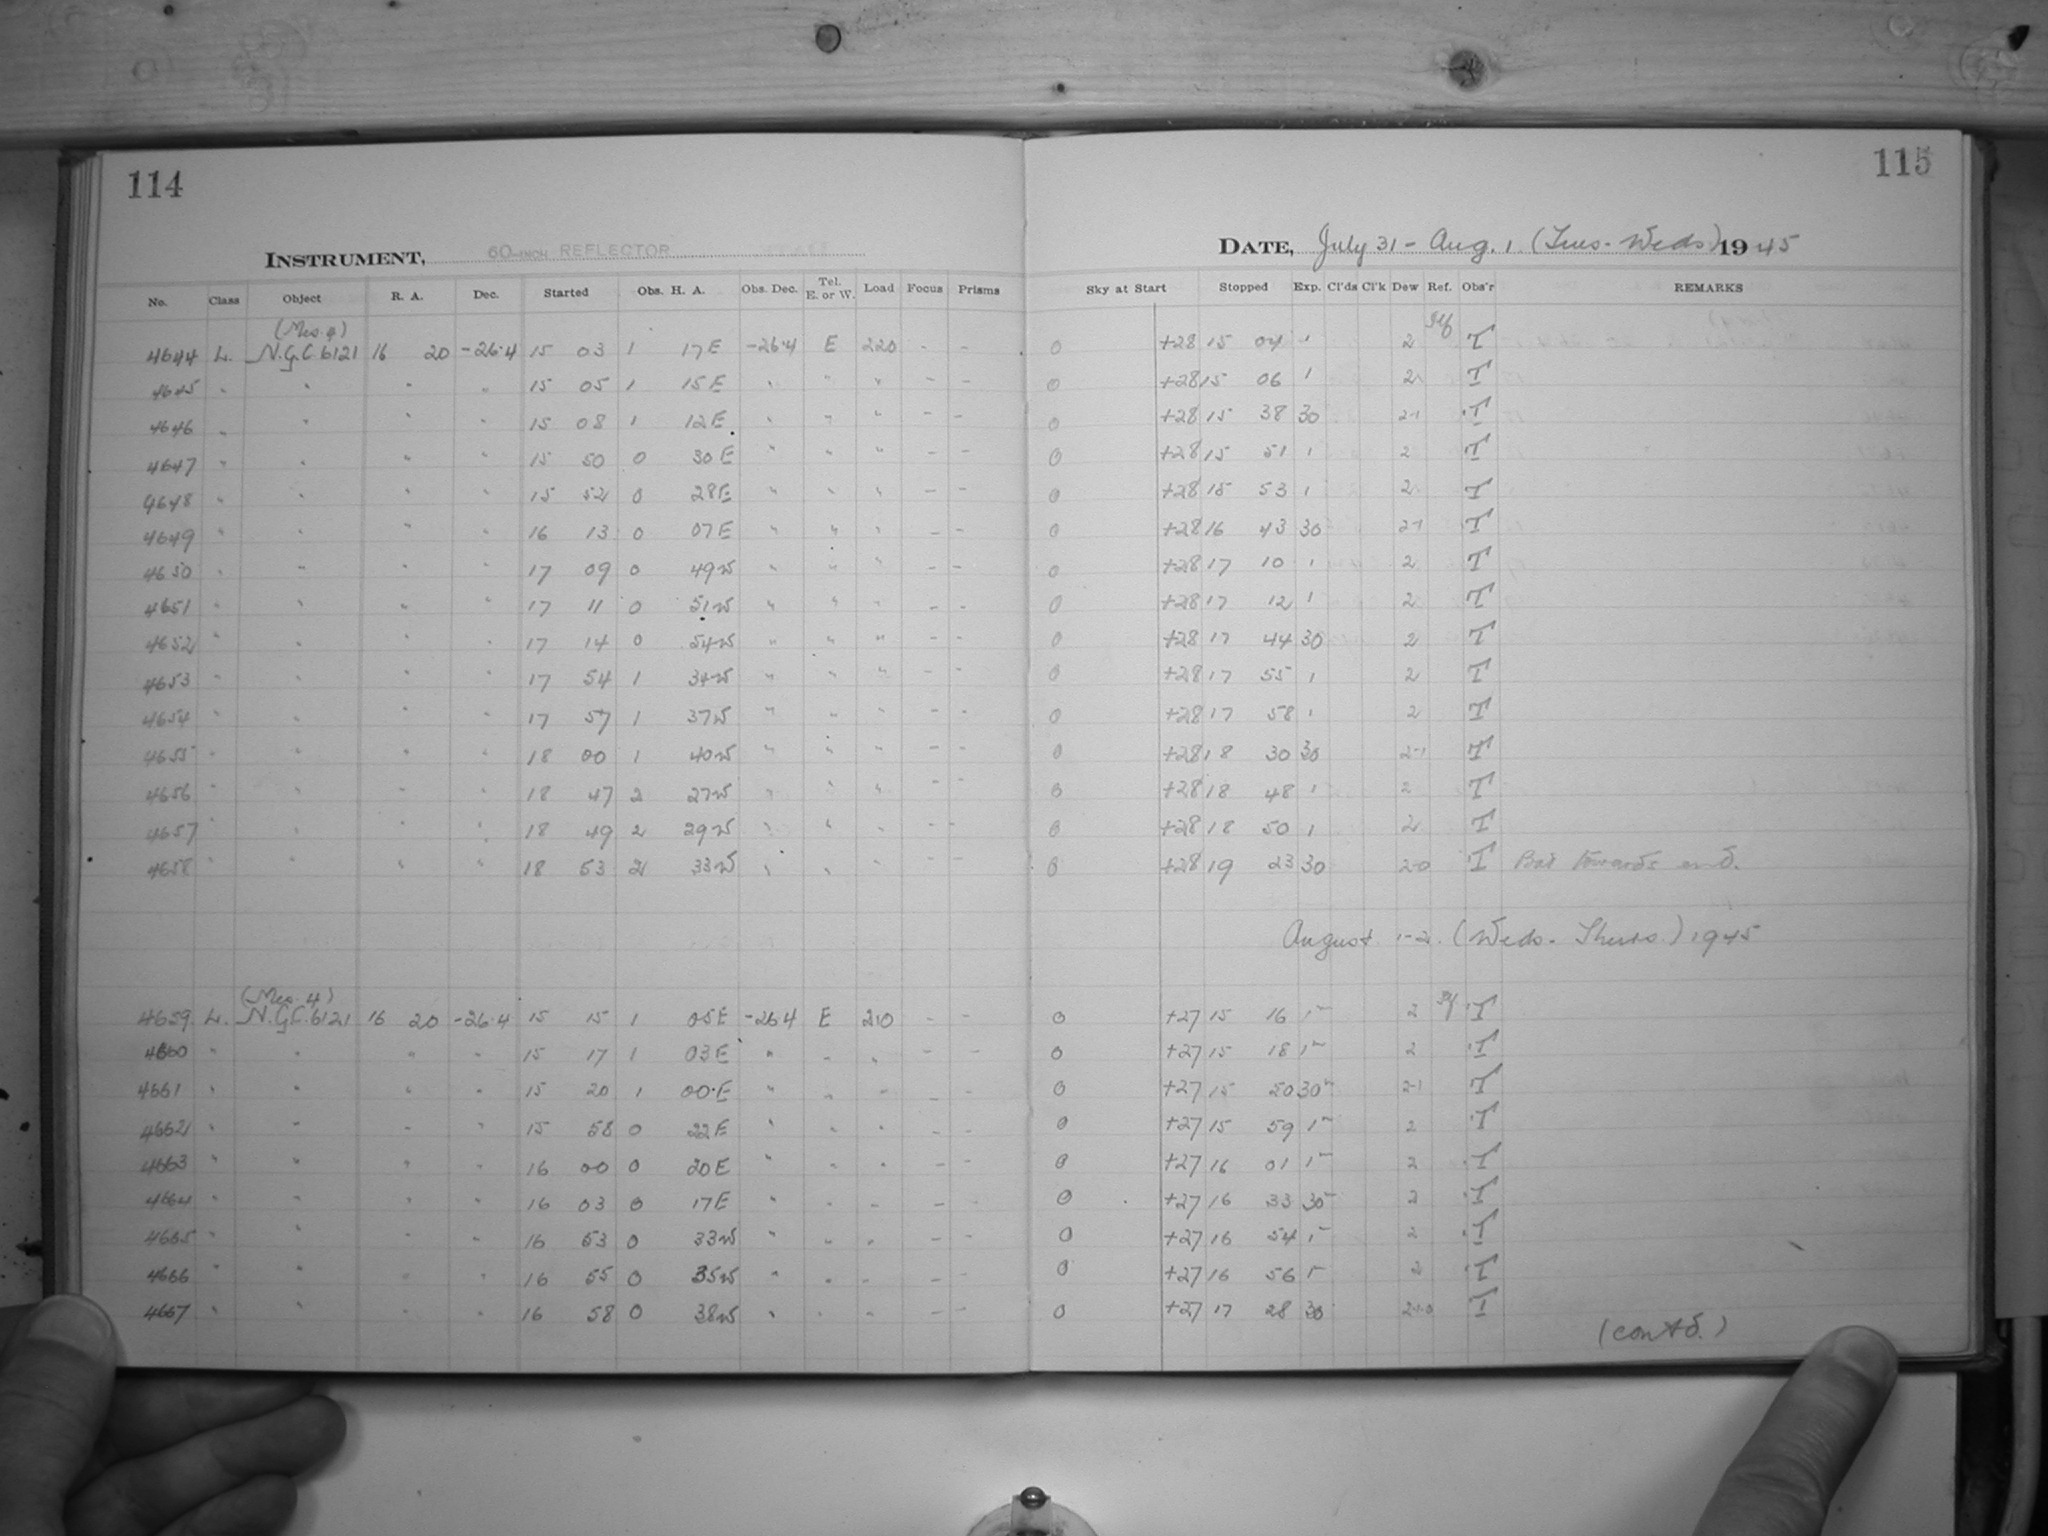 114
115
INSTRUMENT, 60-INCH REFLECTOR
DATE, July 31 - Aug. 1. (Tues. - Weds.) 1945
No. Class Object R. A. Dec. Started Obs. H. A. Obs. Dec. Tel. E. or W. Load Focus Prisms Sky at Start Stopped Exp. Cl'ds Cl'k Dew Ref. Obs'r REMARKS
(Mes. 4)
4644 L. N.G.C. 6121 16 20 -26.4 15 03 1 17 E -26.4 E 220 - - 0 +28 15 04 1 2 T
4645 " " " " 15 05 1 15 E " " " - - 0 +28 15 06 1 2 T
4646 " " " " 15 08 1 12 E " " " - - 0 +28 15 38 30 2-1 T
4647 " " " " 15 50 0 30 E " " " - - 0 +28 15 51 1 2 T
4648 " " " " 15 52 0 28 E " " " - - 0 +28 15 53 1 2 T
4649 " " " " 16 13 0 07 E " " " - - 0 +28 16 43 30 2-1 T
4650 " " " " 17 09 0 49 W " " " - - 0 +28 17 10 1 2 T
4651 " " " " 17 11 0 51 W " " " - - 0 +28 17 12 1 2 T
4652 " " " " 17 14 0 54 W " " " - - 0 +28 17 44 30 2 T
4653 " " " " 17 54 1 34 W " " " - - 0 +28 17 55 1 2 T
4654 " " " " 17 57 1 37 W " " " - - 0 +28 17 58 1 2 T
4655 " " " " 18 00 1 40 W " " " - - 0 +28 18 30 30 2-1 T
4656 " " " " 18 47 2 27 W " " " - - 0 +28 18 48 1 2 T
4657 " " " " 18 49 2 29 W " " " - - 0 +28 18 50 1 2 T
4658 " " " " 18 53 2 33 W " " " - - 0 +28 19 23 30 2-0 T Bad towards end.
August 1-2. (Weds. - Thurs.) 1945
(Mes. 4)
4659 L. N.G.C. 6121 16 20 -26.4 15 15 1 05 E -26.4 E 210 - - 0 +27 15 16 1 2 T
4660 " " " " 15 17 1 03 E " " " - - 0 +27 15 18 1 2 T
4661 " " " " 15 20 1 00 E " " " - - 0 +27 15 50 30 2-1 T
4662 " " " " 15 58 0 22 E " " " - - 0 +27 15 59 1 2 T
4663 " " " " 16 00 0 20 E " " " - - 0 +27 16 01 1 2 T
4664 " " " " 16 03 0 17 E " " " - - 0 +27 16 33 30 2 T
4665 " " " " 16 53 0 33 W " " " - - 0 +27 16 54 1 2 T
4666 " " " " 16 55 0 35 W " " " - - 0 +27 16 56 1 2 T
4667 " " " " 16 58 0 38 W " " " - - 0 +27 17 28 30 2-1-0 T
(contd.)